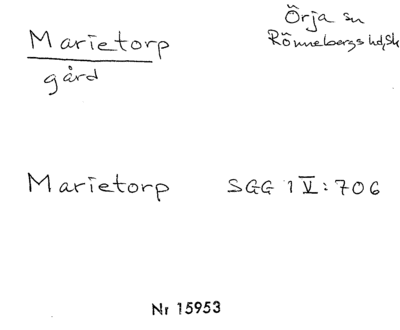 Marietorp
gård
Örja sn
Rönnebergs hd, Sk
Marietorp SGG 1 V: 706
Nr 15953